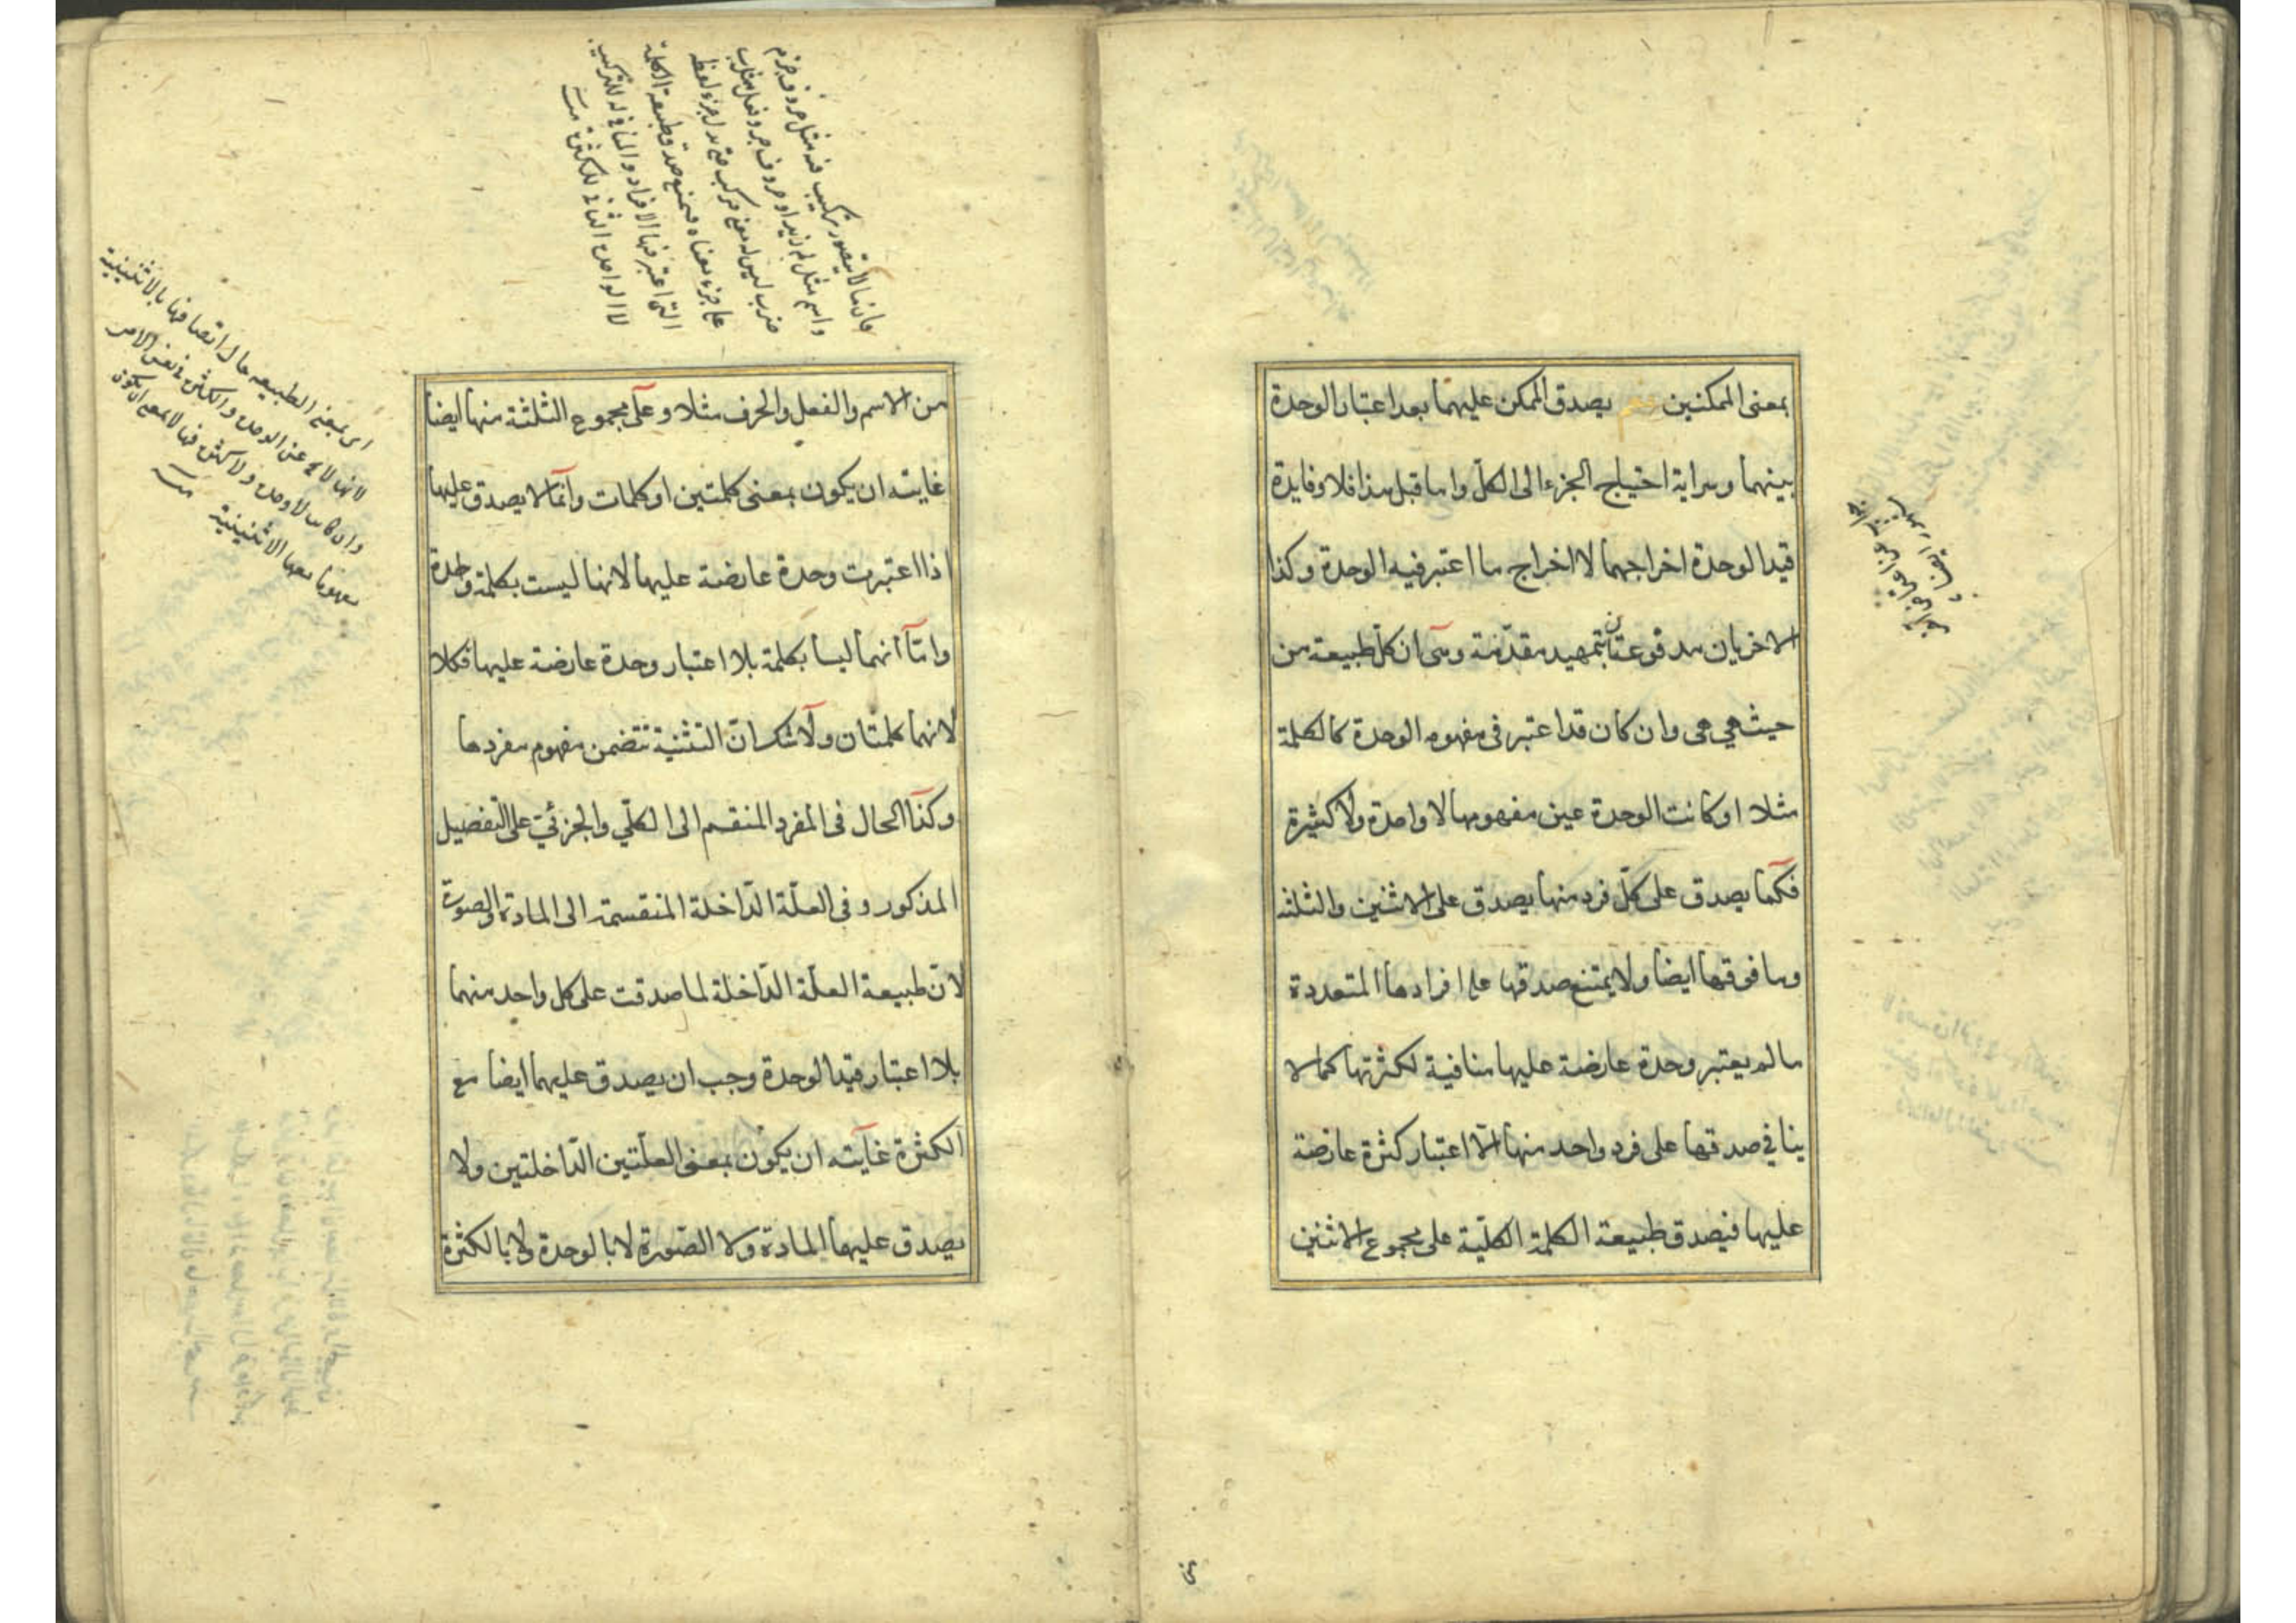 بمعنى الممكنين نعم يصدق الممكن عليهما بعد اعتبار الوحدة
بينهما وسراية احتياج الجزء الى الكلّ واما قبل هذا فلا وفايدة
قيد الوحدة اخراجهما لا اخراج ما اعتبر فيه الوحدة وكذا
الاخريان مدفوعتان بتمهيد مقدّمة وهى ان كلّ طبيعة من
حيث هي هى وان كان قد اعتبر فى مفهومه الوحدة كالكلمة
مثلا او كانت الوحدة عين مفهومها لا واحدة ولا كثيرة
فكما يصدق على كلّ فرد منها يصدق على الاثنين والثلثه
وما فوقها ايضا ولا يمتنع صدقها على افرادها المتعددة
ما لم يعتبر وحدة عارضة عليها منافية لكثرتها كما لا
ينافي صدقها على فرد واحد منها الّا اعتبار كثرة عارضة
عليها فيصدق طبيعة الكلمة الكلّية على مجموع الاثنين
من الاسم والفعل والحرف مثلا وعلى مجموع الثلثة منها ايضا
غايته ان يكون بمعنى كلمتين او كلمات وانّما لا يصدق عليها
اذا اعتبرت وحدة عارضة عليها لانها ليست بكلمة واحدة
وامّا انهما ليسا بكلمة بلا اعتبار وحدة عارضة عليها فكلا
لانهما كلمتان ولا شك ان التثنية تتضمن مفهوم مفردها
وكذا الحال فى المفرد المنقسم الى الكلّي والجزئي على التفصيل
المذكور وفى العلّة الدّاخلة المنقسمة الى المادة والصورة
لانّ طبيعة العلّة الدّاخلة لما صدقت على كل واحد منهما
بلا اعتبار قيد الوحدة وجب ان يصدق عليهما ايضا مع
الكثرة غايته ان يكون بمعنى العلّتين الدّاخلتين ولا
يصدق عليها المادة ولا الصّورة لا بالوحدة ولا بالكثرة
فانها لا يتصور تركيب فيه مثل حروف جزم
واسم مثل لم زيد او حروف جر وفعل مثل ب
ضرب ليس له معنى مركب حتى يدل جزء لفظه
على جزء معناه فيمتنع صدق طبيعة الكلمة
التى اعتبر فيها الافراد والمنافى له للتركيب
لا الواحدة الثانى للكثرة منه
اى بمعنى الطبيعه حال اتصافها بالاثنينية
لانها لا عن الوحدة والكثرة فى نفس الامر
وان كانت لا وحدة ولا كثرة فيها لا بمعنى ان يكون
مفهومها الاثنينية منه